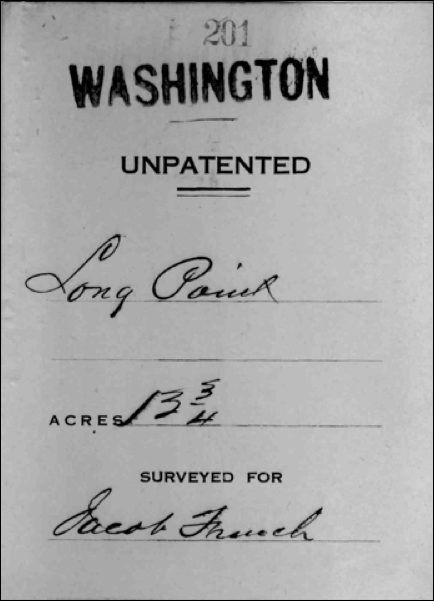 201
WASHINGTON
UNPATENTED
Long Point
ACRES 13 3/4
SURVEYED FOR
Jacob French